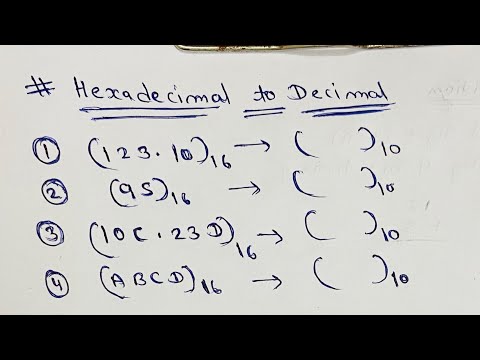 # Hexadecimal to Decimal
① (123.10)₁₆ → (    )₁₀
② (95)₁₆ → (    )₁₀
③ (10C.23D)₁₆ → (    )₁₀
④ (ABCD)₁₆ → (    )₁₀